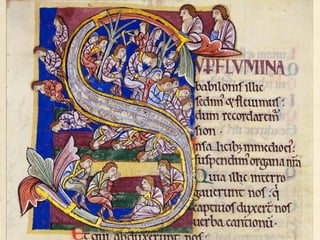 SUPFLUMINA
babilonis illic
sedim' & fleuimus:
dum recordaremur
sion.
In salicib; in medio ei':
suspendim' organa nra
Quia illic interro
gauerunt nos: q
captiuos duxer̄t nos
uerba cantionū
Et qui abduxerunt nos